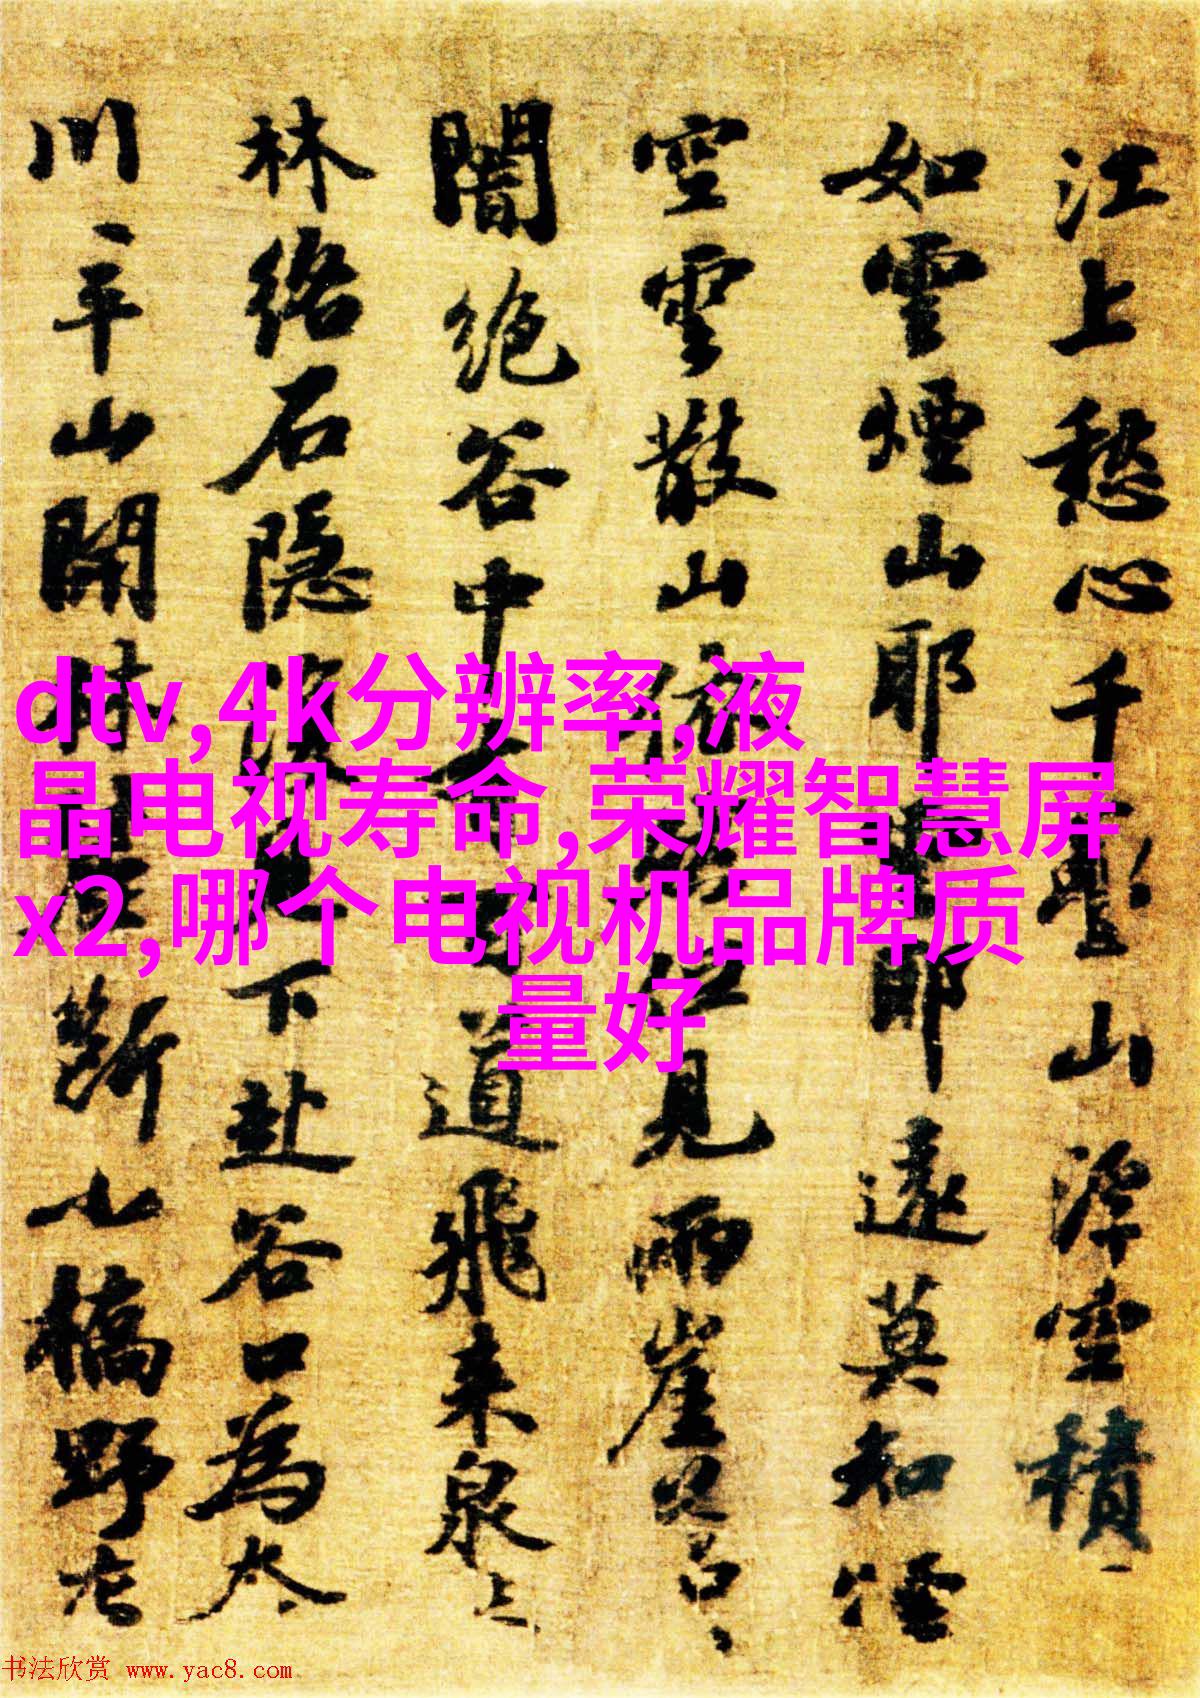 江上愁心千疊山浮空積〻
如雲煙山耶雲耶遠莫知煙
空雲散山依然但見兩崖蒼〻
闇絶谷中有百道飛來泉上
林絡石隱復見下赴谷口為太
川〻平山開林麓斷小橋野店
dtv,4k分辨率,液
晶电视寿命,荣耀智慧屏
x2,哪个电视机品牌质
量好
书法欣赏 www.yac8.com